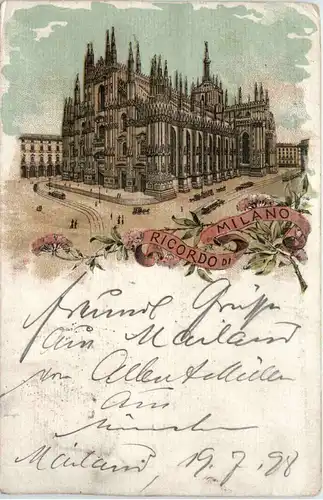 RICORDO DI MILANO
freundl Grüße
aus Mailand
von Albert Müller
aus
München
Mailand, 19.7.98